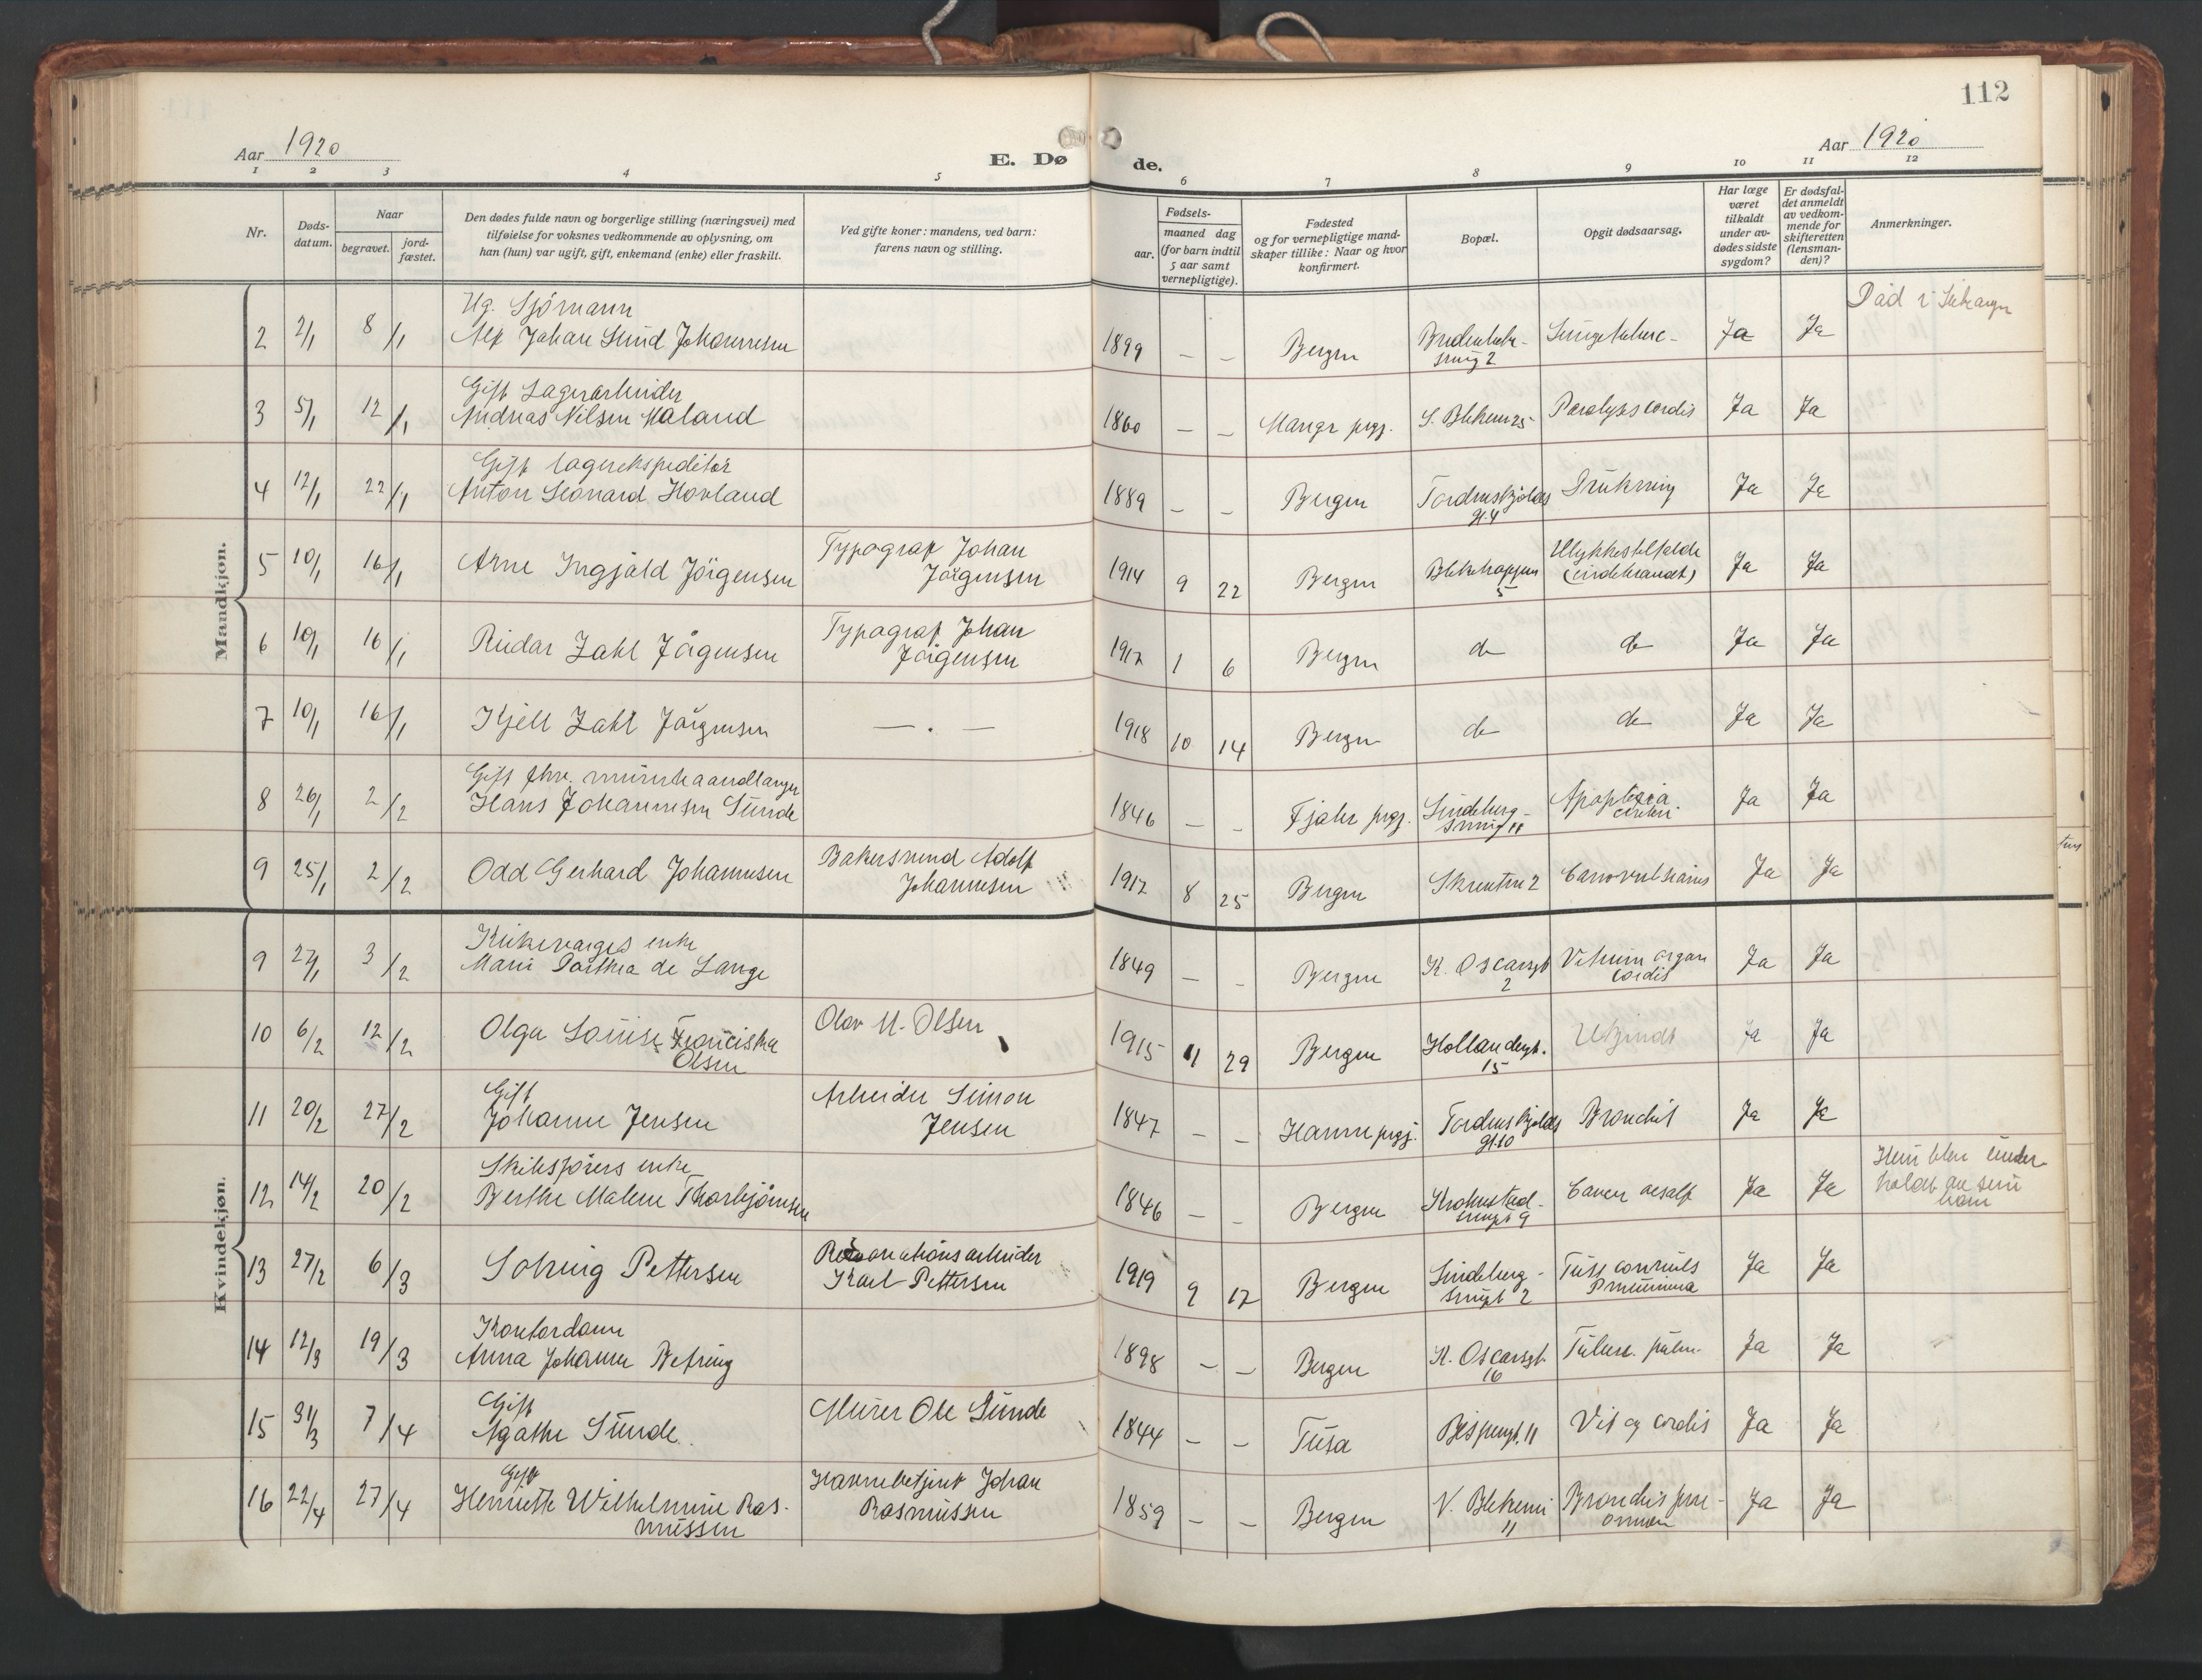 112
Aar 1920
E. Dø
de.
Aar 1920
1 2 3 4 5 6 7 8 9 10 11 12
Nr.
Døds-
datum.
Naar
begravet.
jord-
fæstet.
Den dødes fulde navn og borgerlige stilling (næringsvei) med
tilføielse for voksnes vedkommende av oplysning, om
han (hun) var ugift, gift, enkemand (enke) eller fraskilt.
Ved gifte koner: mandens, ved barn:
farens navn og stilling.
Fødsels-
aar.
maaned dag
(for barn indtil
5 aar samt
vernepligtige).
Fødested
og for vernepligtige mand-
skaper tillike: Naar og hvor
konfirmert.
Bopæl.
Opgit dødsaarsag.
Har læge
været
tilkaldt
under av-
dødes sidste
sygdom?
Er dødsfal-
det anmeldt
av vedkom-
mende for
skifteretten
(lensman-
den)?
Anmerkninger.
Mandkjøn.
Ug. Sjömann
2 2/1 8/1 Alf Johan Sund Johannesen 1899 – – Bergen 2 Ja Ja
Gift Lagerarbeider
3 5/1 12/1 Andreas Nilsen Maland 1860 – – Manger prgj. S. Blekeun 25 Paralysis cordis Ja Ja
Gift lagerekspeditör
4 12/1 22/1 Anton Leonard Hovland 1889 – – Bergen Tordenskjolds
gt. 4 Drukning Ja Ja
5 10/1 16/1 Arne Ingjald Jörgensen Typograf Johan
Jörgensen 1914 9 22 Bergen 5 Ulykkestilfælde
(indebrændt) Ja Ja
6 10/1 16/1 Reidar Zahl Jörgensen Typograf Johan
Jörgensen 1917 1 6 Bergen do do Ja Ja
7 10/1 16/1 Kjell Zahl Jörgensen — . — 1918 10 14 Bergen do do Ja Ja
Gift fhv. murerhaandlanger
8 26/1 2/2 Hans Johannesen Sunde 1846 – – Fjaler prgj. Lindeberg-
smug 11 Apoplexia
cerebri Ja Ja
9 25/1 2/2 Odd Gerhard Johannesen Bakersvend Adolf
Johannesen 1917 8 25 Bergen Skrentен 2 Ja Ja
Kvindekjøn.
Kirkeværges enke
9 27/1 3/2 Marie Dorthea de Lange 1849 – – Bergen K. Oscarsgt
2 Vitium organ
cordis Ja Ja
10 6/2 12/2 Olga Louise Franciska
Olsen Olav M. Olsen 1915 11 29 Bergen Hollendergt.
15 Ja Ja
Gift
11 20/2 27/2 Johanne Jensen Arbeider Simon
Jensen 1847 – – Hammer prgj. Tordenskjolds
gt. 10 Bronchit Ja Ja
Skibsförers enke
12 14/2 20/2 Berthe Malene Thorbjörnsen 1846 – – Bergen 9 Cancer oesof Ja Ja Hun blev under-
holdt av sine
barn
13 27/2 6/3 Solveig Pettersen arbeider
Karl Pettersen 1919 9 17 Bergen Lindeberg-
smugt 2 Tuss convuls
Pneumonia Ja Ja
Kontordame
14 12/3 19/3 Anna Johanne 1898 – – Bergen K. Oscarsgt.
16 Tuberc. pulm. Ja Ja
Gift
15 31/3 7/4 Agathe Sunde. Murer Ole Sunde 1844 – – Tusa Bispengt. 11 Vit og cordis Ja Ja
Gift
16 22/4 27/4 Henriette Wilhelmine Ras-
mussen Havnebetjent Johan
Rasmussen 1859 – – Bergen 11 Ja Ja